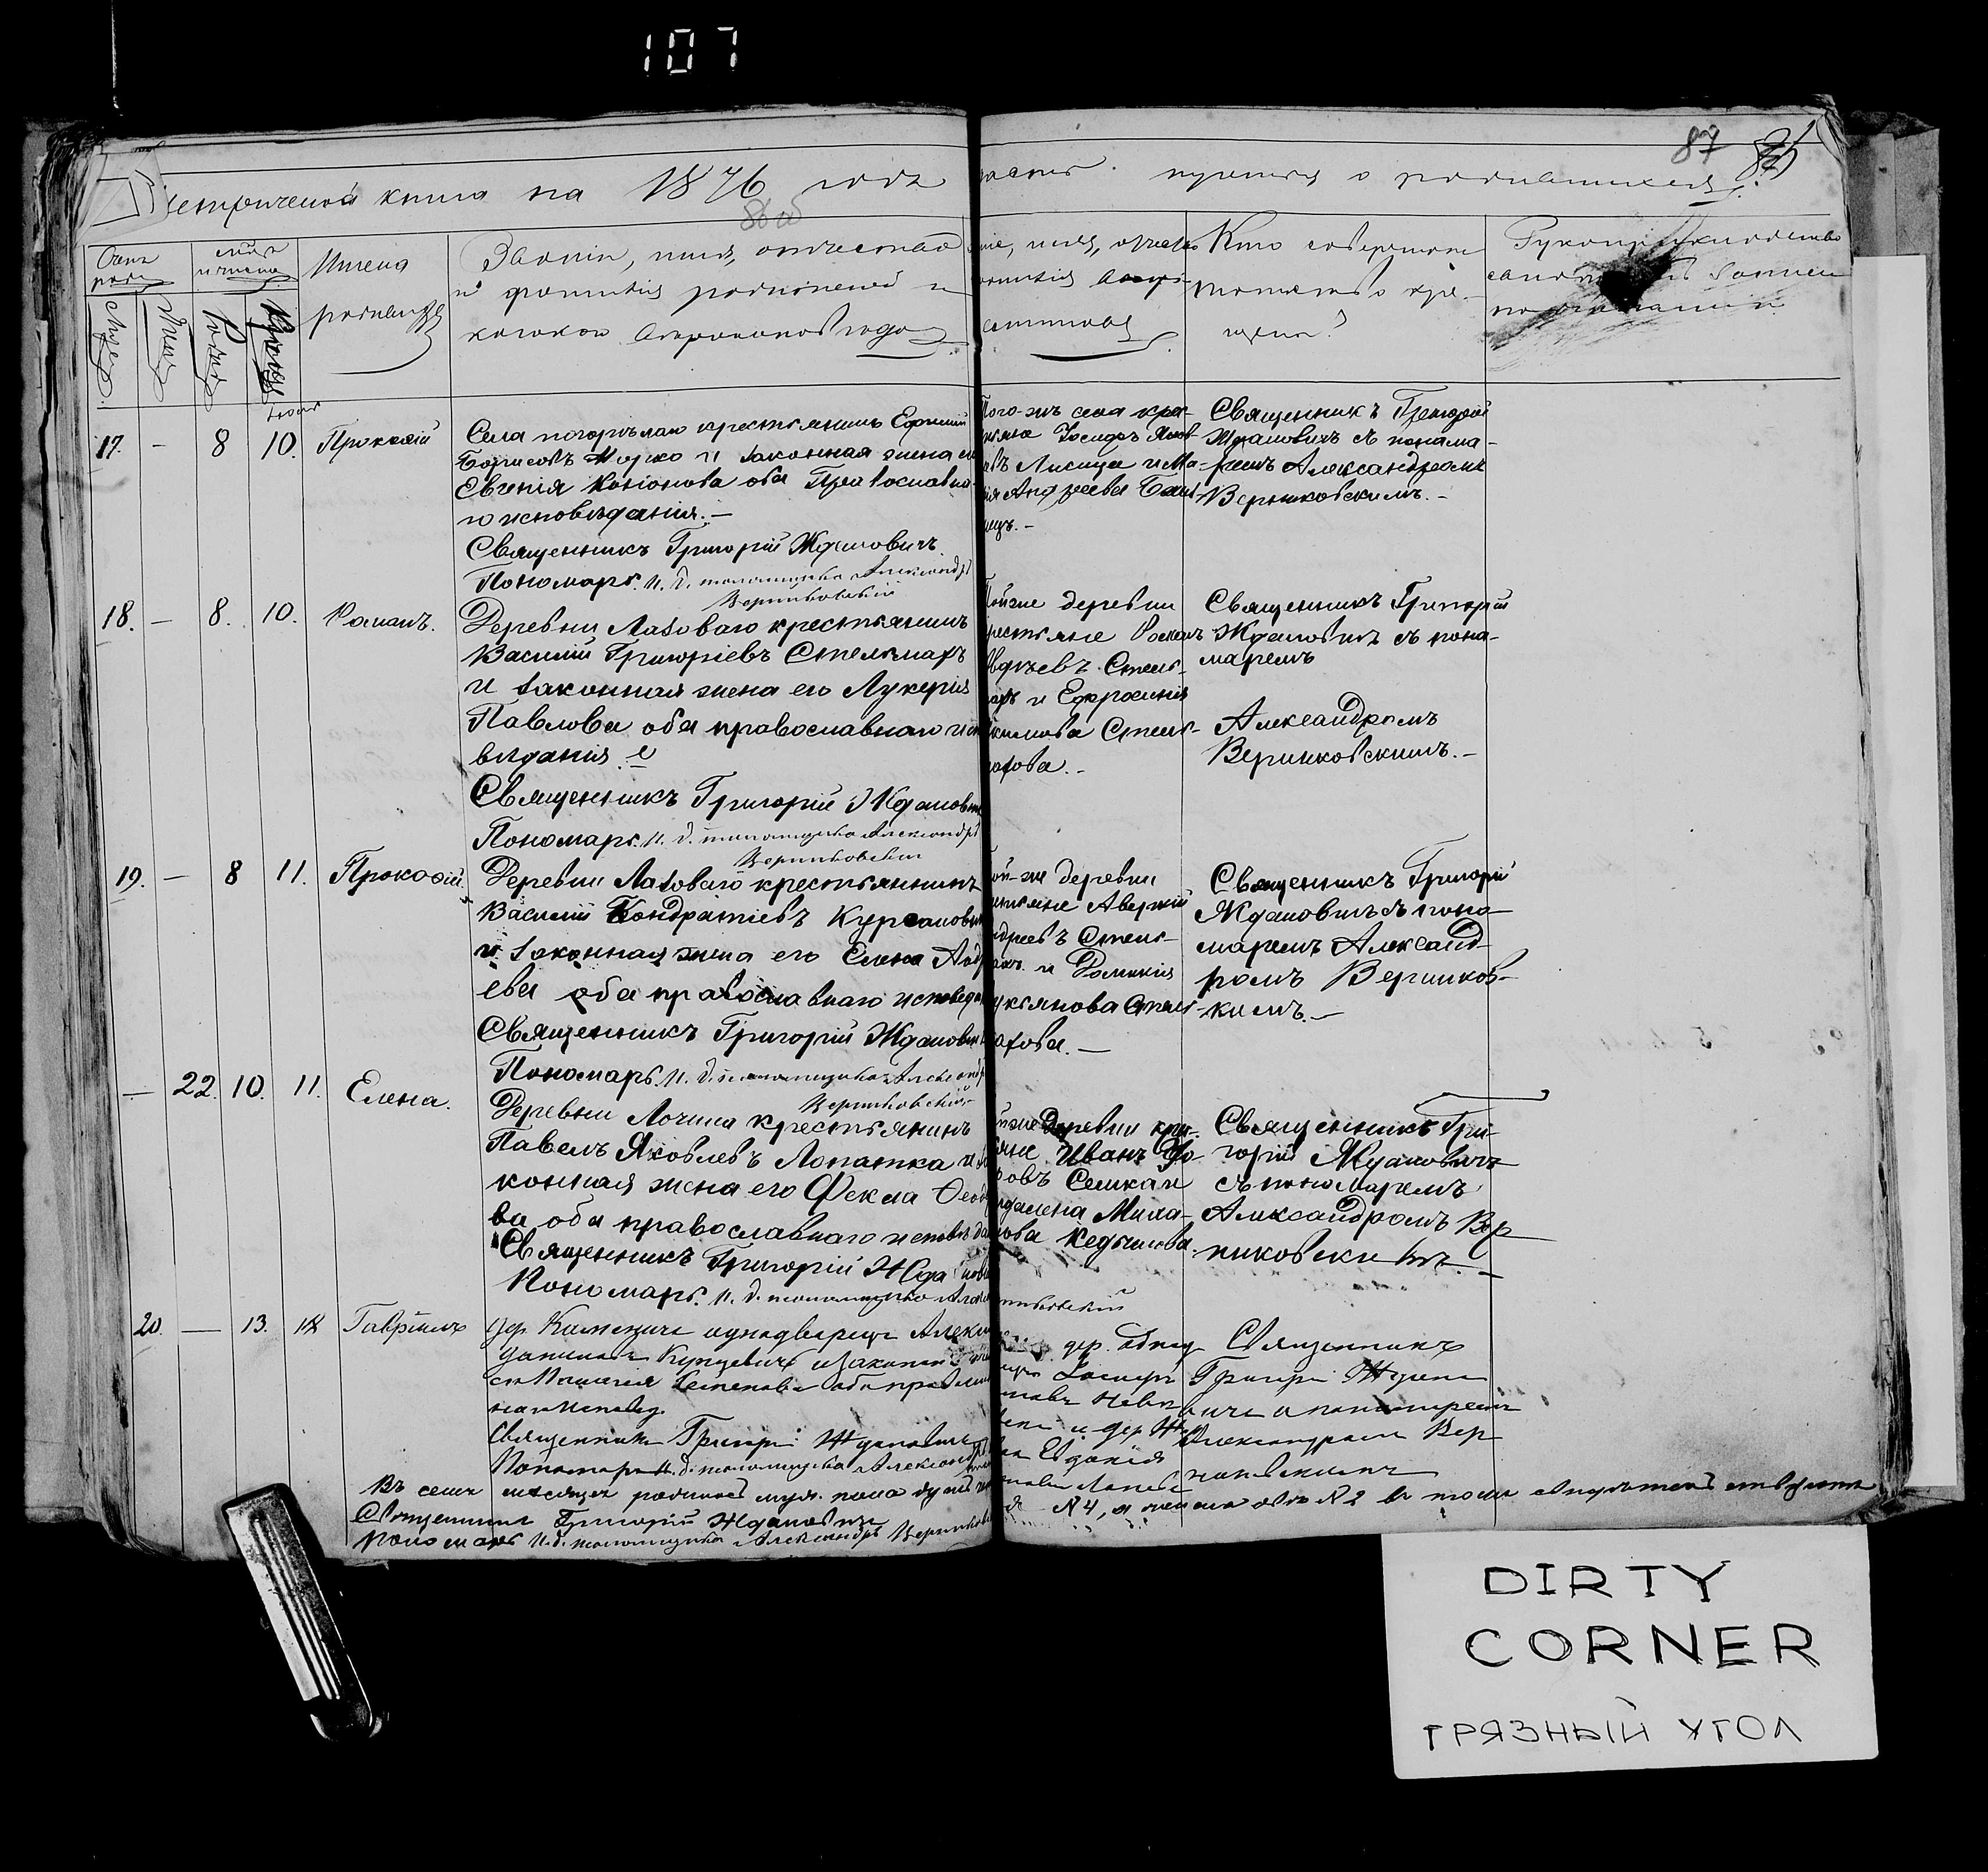 107
87
Метрической книга на 1876 годъ
часть о родившихся
86 об
Счетъ родив
Мѣсяц и число
Имена родившихся
Званіе, имя, отчество и фамилія родителей и какого вѣроисповѣданія
имя, отчество фамилія воспріемниковъ
Кто совершалъ таинство крещенія?
Рукоприкладство свидѣтелей записи по желанію
Муж.
Женс.
Рожден.
Крещен.
17. - 8 10. Прокопій
Села погорѣлаго крестьянинъ Ефимій
Борисовъ Мурко и законная жена его
Евгенія Кононова оба Православна-
го исповѣданія.-
Священникъ Григорій Ждановичъ
Пономарь И. д. псаломщика Александръ
Верниковскій
Того-жъ села кре-
стьяне Іосифъ Яков-
левъ Лисица и Ма-
рія Андреева
Священникъ Григорій
Ждановичъ съ понама-
ремъ Александромъ
Верниковскимъ.-
18. - 8. 10. Романъ.
Деревни Лазоваго крестьянинъ
Василій Григоріевъ Стельмахъ
и законная жена его Лукерія
Павлова оба православнаго испо
вѣданія
Священникъ Григорій Ждановичъ
Пономарь. И. д. псаломщика Александръ
Верниковскій
Той же деревни
крестьяне Романъ
Авдѣевъ Стель-
махъ и Ефросинія
Якимова Стель-
махова.-
Священникъ Григорій
Ждановичъ съ пона-
маремъ
Александромъ
Верниковскимъ.-
19. - 8 11. Прокофій.
Деревни Лазоваго крестьянинъ
Василій Кондратіевъ Курсановичъ
и законная жена его Елена Андр
еева оба православнаго исповѣдан
Священникъ Григорій Ждановичъ
Пономарь. И. д. псаломщика Александръ
Верниковскій
той-же деревни
крестьяне Аверкій
Андреевъ Стель-
махъ и Домникія
Лукьянова Стель-
махова.-
Священникъ Григорій
Ждановичъ съ поно-
маремъ Александ-
ромъ Верников-
кимъ.-
- 22. 10. 11. Елена.
Деревни Лочина крестьянинъ
Павелъ Яковлевъ Лопатка и за
конная жена его Фекла Ѳеодо
ва оба православнаго исповѣдан
Священникъ Григорій Ждановичъ
Пономарь. И. д. псаломщика Алек
Верниковскій
той же деревни кре-
стьяне Иванъ
ровъ Семкан и
Магдалена Миха-
лова Кедышова
Священникъ Гри-
горій Ждановичъ
съ пономаремъ
Александромъ Вер
никовскимъ.-
20. - 13. 18 Гавріилъ
дер. Каменичи однодворецъ Алекс
Данилов Кунцевичъ и законная жена
его Пелагея Семенова оба православ
наго исповед.
Священникъ Григорій Ждановичъ
Пономарь И. д. псаломщика Александръ
дер. однод
Іосифъ
и дер.
Евдокія
Священникъ
Григорій Ждано
вичъ с понамаремъ
Александромъ Вер
никовскимъ
Въ семъ мѣсяцѣ родилось муж. пола душъ
№ 4, а женска овъ № 2 въ томъ свидѣтельствуемъ
Священникъ Григорій Ждановичъ
Пономарь И. д. псаломщика Александръ Верниковскій
DIRTY
CORNER
ГРЯЗНЫЙ УГОЛ